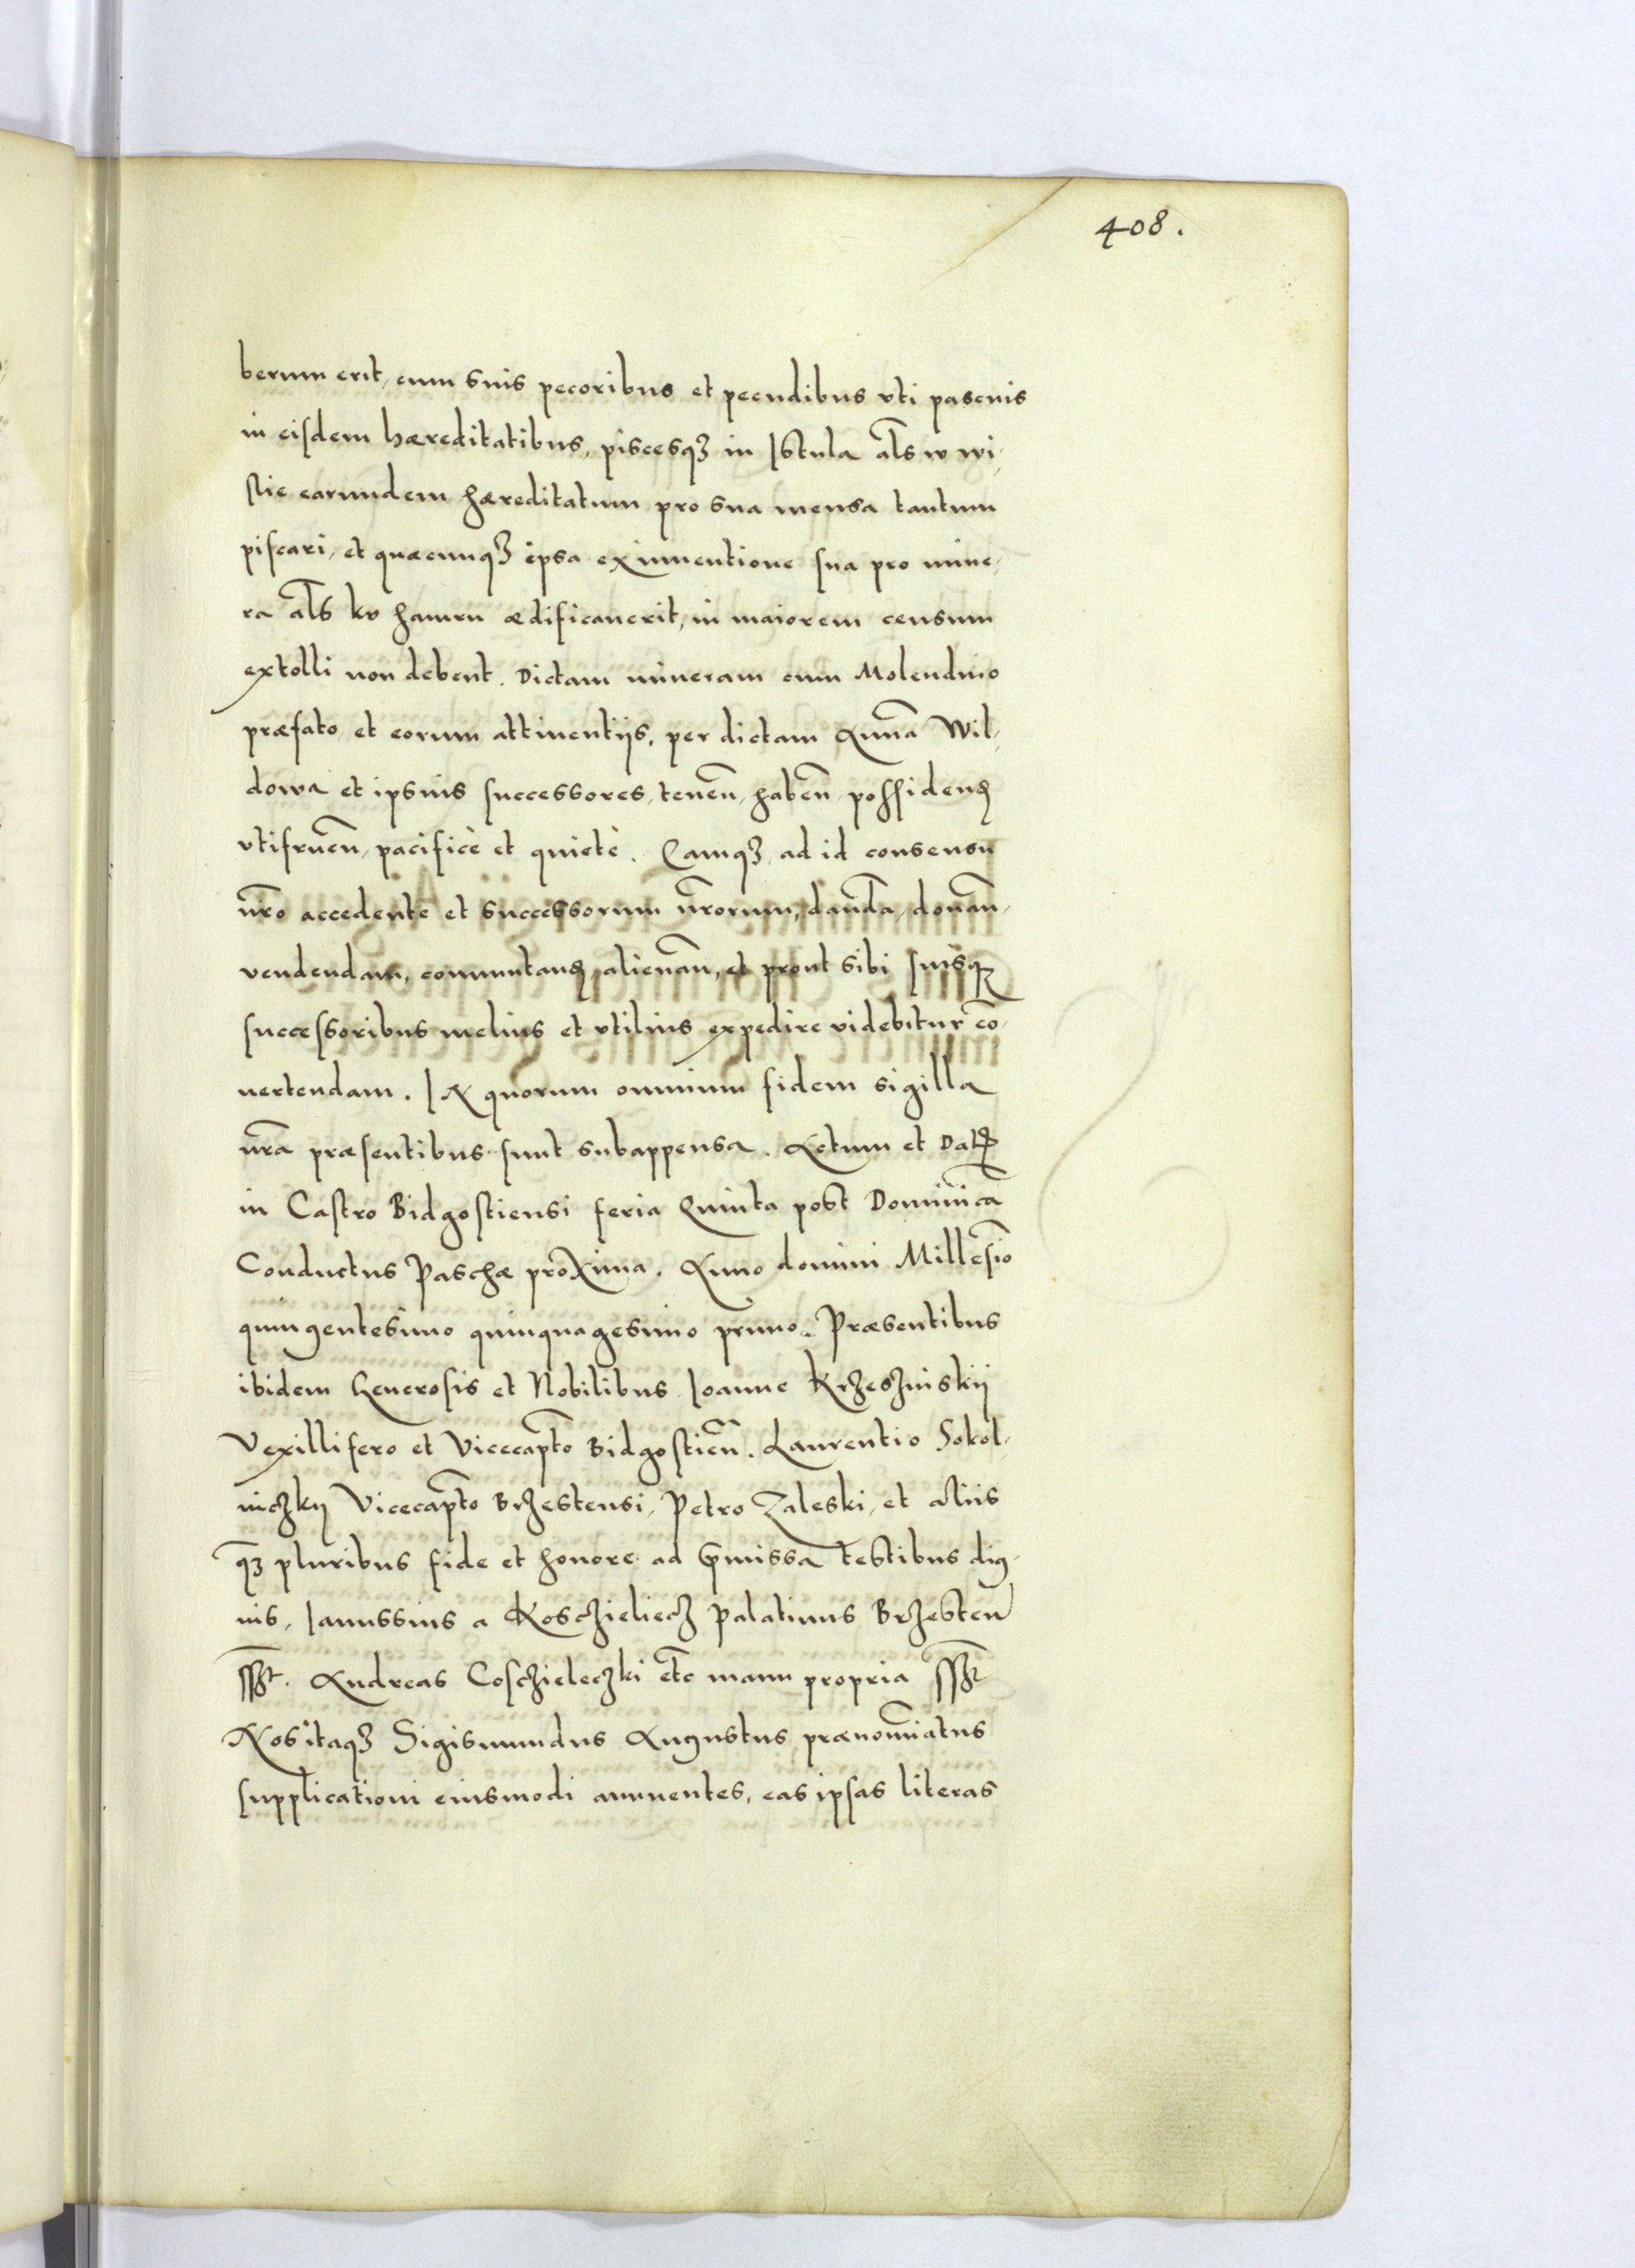 408.
berum erit, cum suis pecoribus et pecudibus vti pascuis
in eisdem hæreditatibus, piscesq₃ in Istula al̄s w wi,
slie earundem hæreditatum pro sua mensa tantum
piscari, et quæcunq₃ ipsa ex inuentione sua pro mine,
ra al̄s kv hamru ædificauerit, in maiorem censum
extolli non debent. Dictam mineram cum Molendino
præfato et eorum attinentijs, per dictam Annā Wil,
dowa et ipsius successores, teneñ, habeñ, possidenđ
vtifrueñ, pacificè et quietè. Eamq₃ ad id consensu
nr̄o accedente et successorum nr̄orum, dandā, donañ,
vendendam, commutanđ, alienañ, et prout sibi suisq₃
successoribus melius et vtilius expedire videbitur cō,
uertendam. IN quorum omnium fidem sigilla
nr̄a præsentibus sunt subappensa. Actum et Datꝭ
in Castro Bidgostiensi feria Quinta post Dominicā
Conductus Paschæ proxima. Anno domini Millesīo
quingentesimo quinquagesimo primo. Præsentibus
ibidem Generosis et Nobilibus Ioanne Krzeszinskij
Vexillifero et Vicecap̄to Bidgostieñ. Laurentio Sokol,
niczkij Vicecap̄to Brzestensi, Petro Zaleski, et alijs
q̄₃ pluribus fide et honore ad p̄missa testibus dig,
nis, Ianussius a Kosczieliecz Palatinus Brzesteñ
ss̄t. Andreas Cosczieleczki etc̄ manu propria ss̄t
Nos itaq₃ Sigismundus Augustus prænominatus
supplicationi eiusmodi annuentes, eas ipsas literas